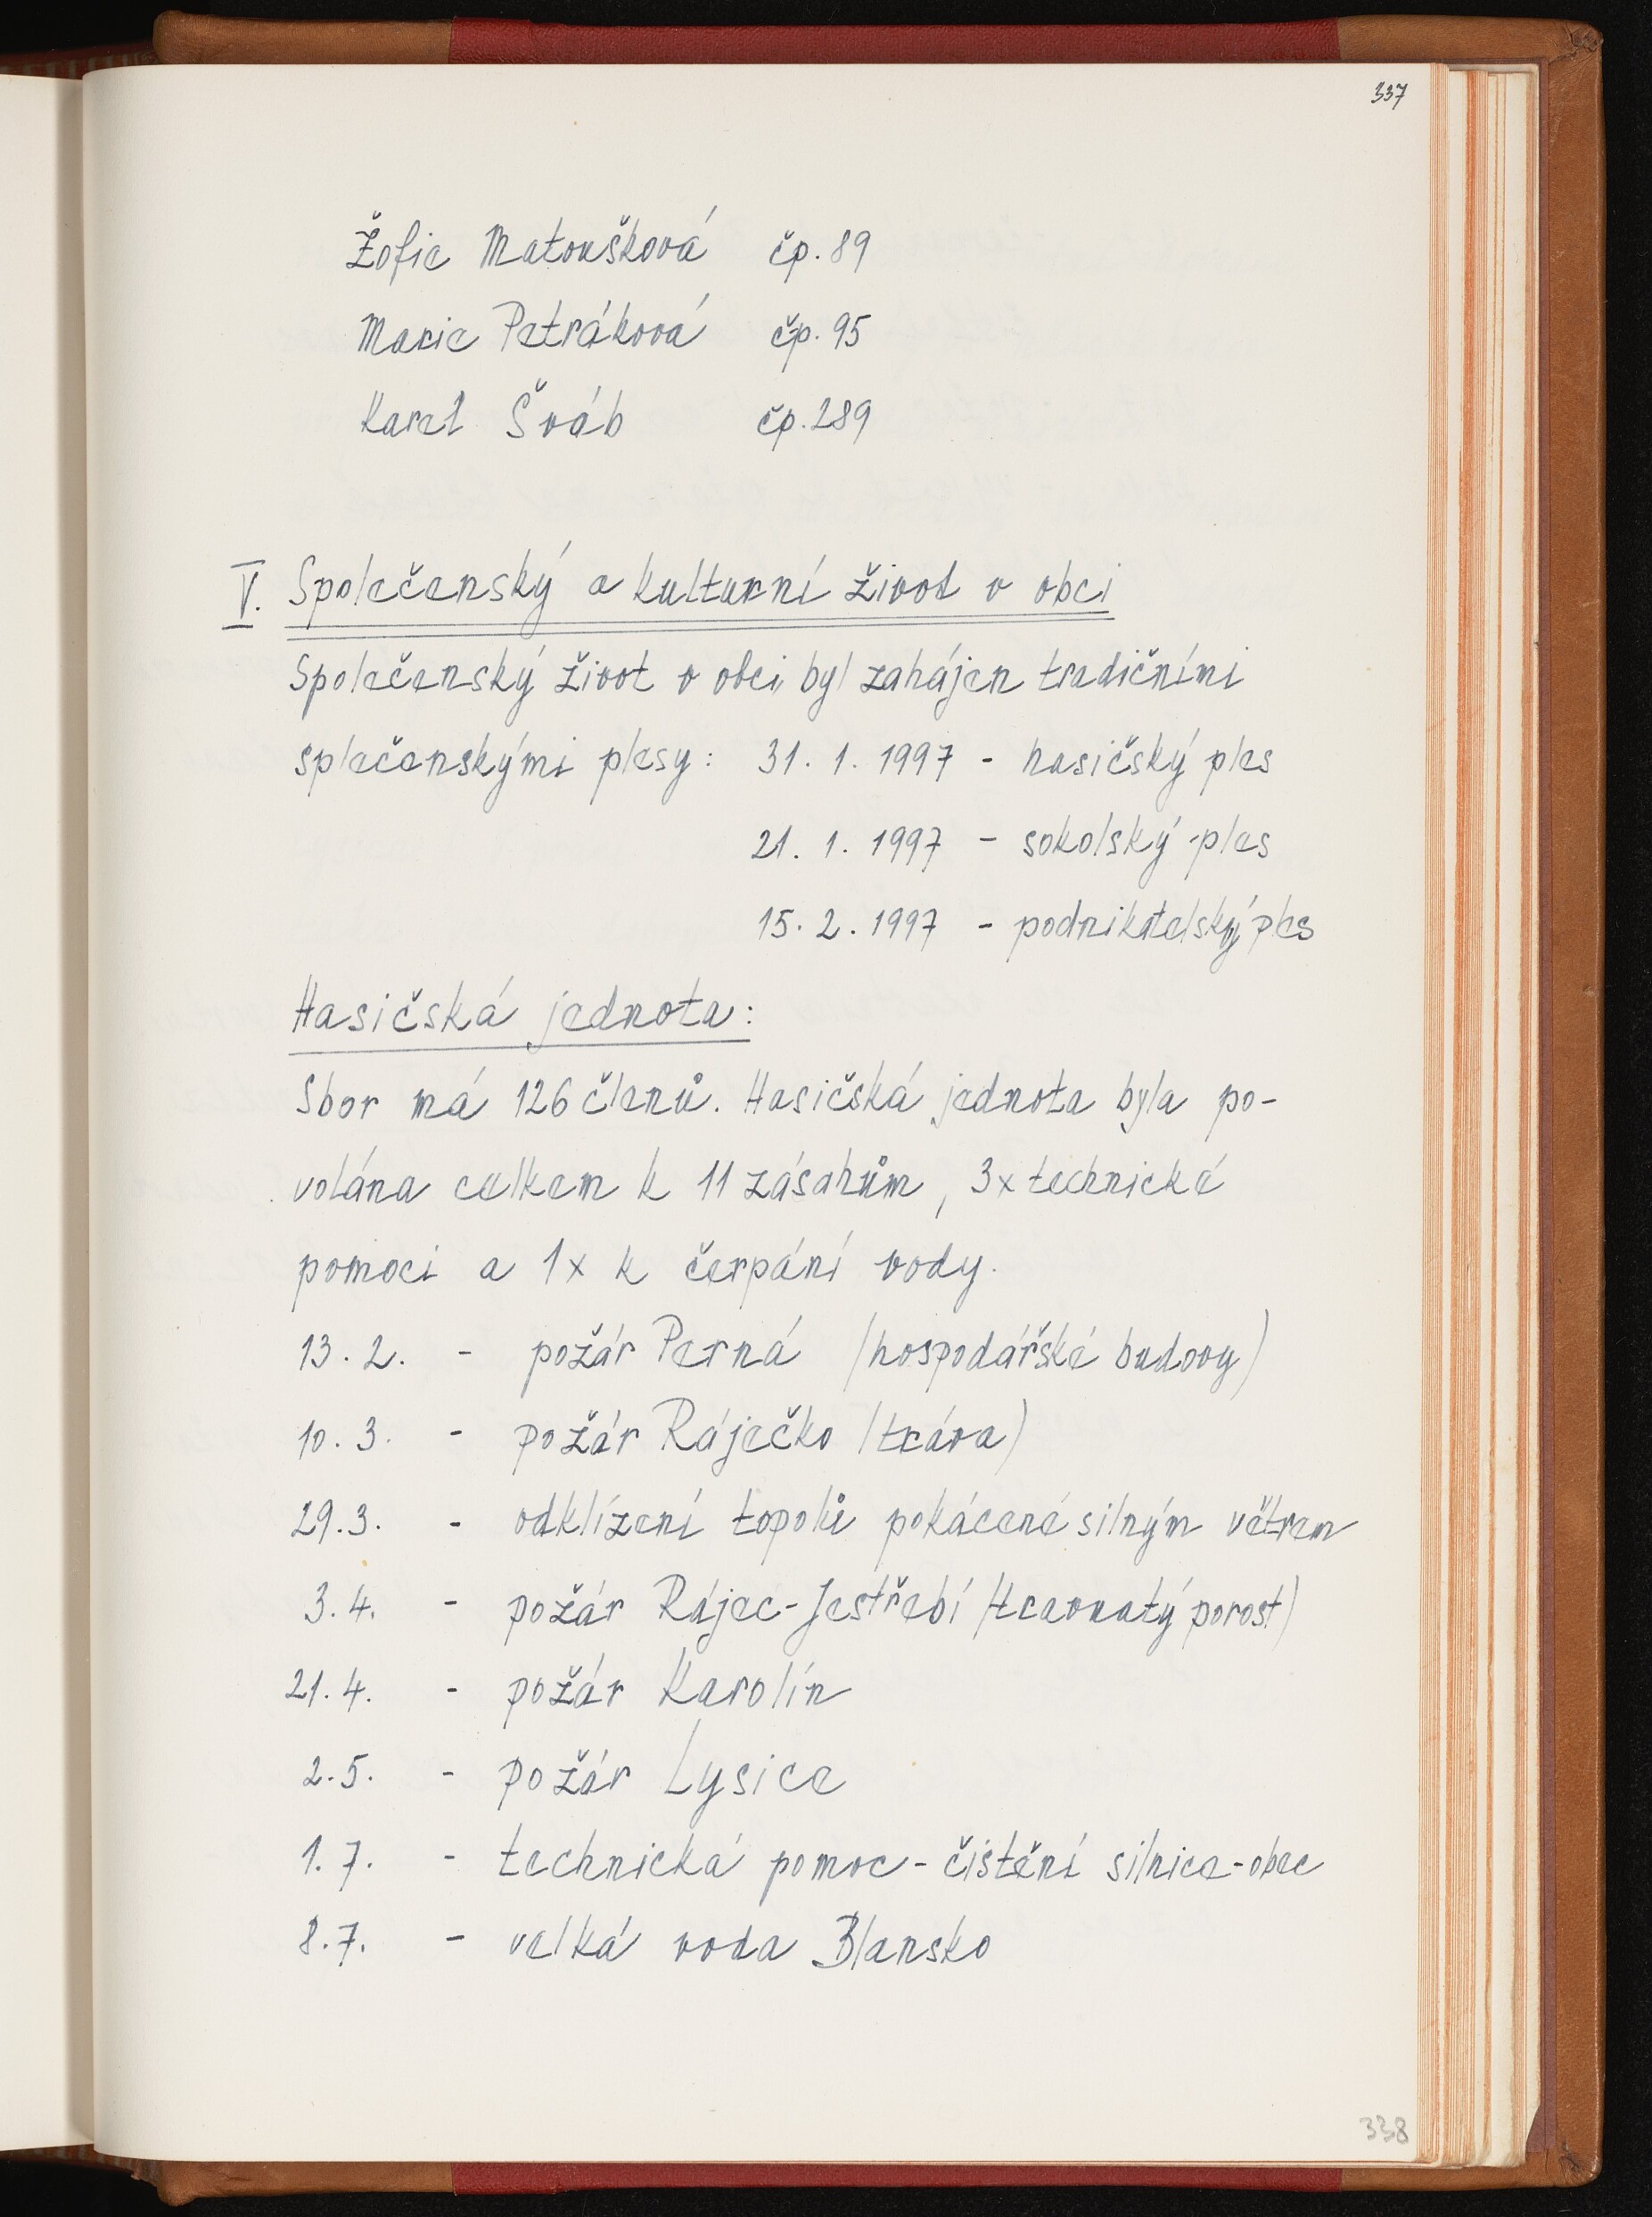 337
Žofie Matoušková čp. 89
Marie Petráková čp. 95
Karel Šváb čp. 289
V. Společenský a kulturní život v obci
Společenský život v obci byl zahájen tradičními
splečenskými plesy: 31. 1. 1997 - hasičský ples
21. 1. 1997 - sokolský ples
15. 2. 1997 - podnikatelský ples
Hasičská jednota:
Sbor má 126 členů. Hasičská jednota byla po-
volána celkem k 11 zásahům, 3x technické
pomoci a 1x k čerpání vody.
13. 2. - požár Perná /hospodářské budovy/
10. 3. - požár Ráječko /tráva/
29. 3. - odklízení topolů pokácené silným větrem
3. 4. - požár Rájec-Jestřebí /travnatý porost/
21. 4. - požár Karolín
2. 5. - požár Lysice
1. 7. - technická pomoc - čištění silnice - obec
8. 7. - velká voda Blansko
338